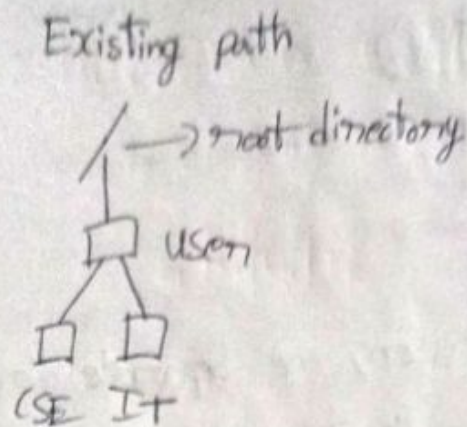 Existing path
/ → root directory
user
CSE IT